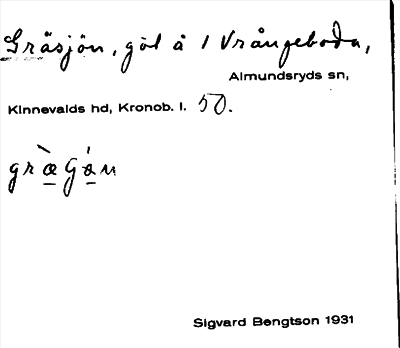 Gräsjön, göl å 1 Vrångeboda,
Almundsryds sn,
Kinnevalds hd, Kronob. l. 50.
græ̀Gǿn
Sigvard Bengtson 1931